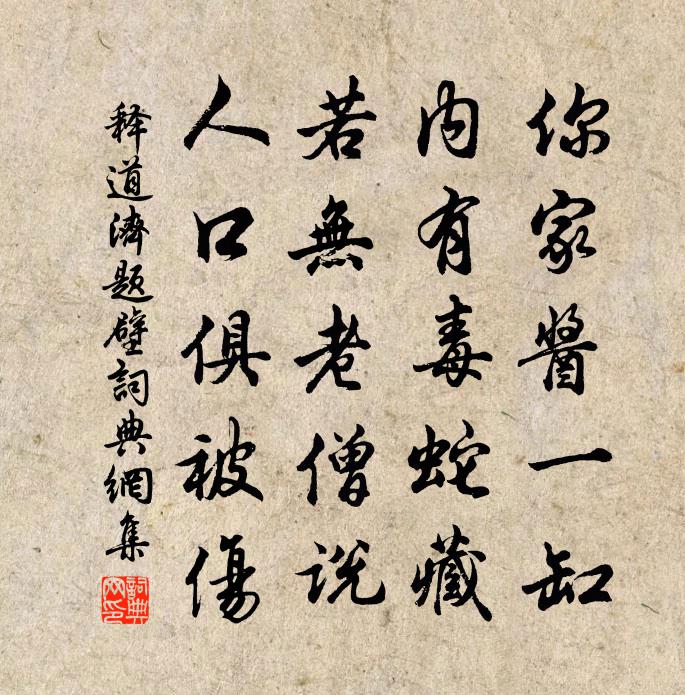 你家醬一缸
内有毒蛇藏
若無老僧説
人口俱被傷
释道濟題壁詞典網集
詞典网印